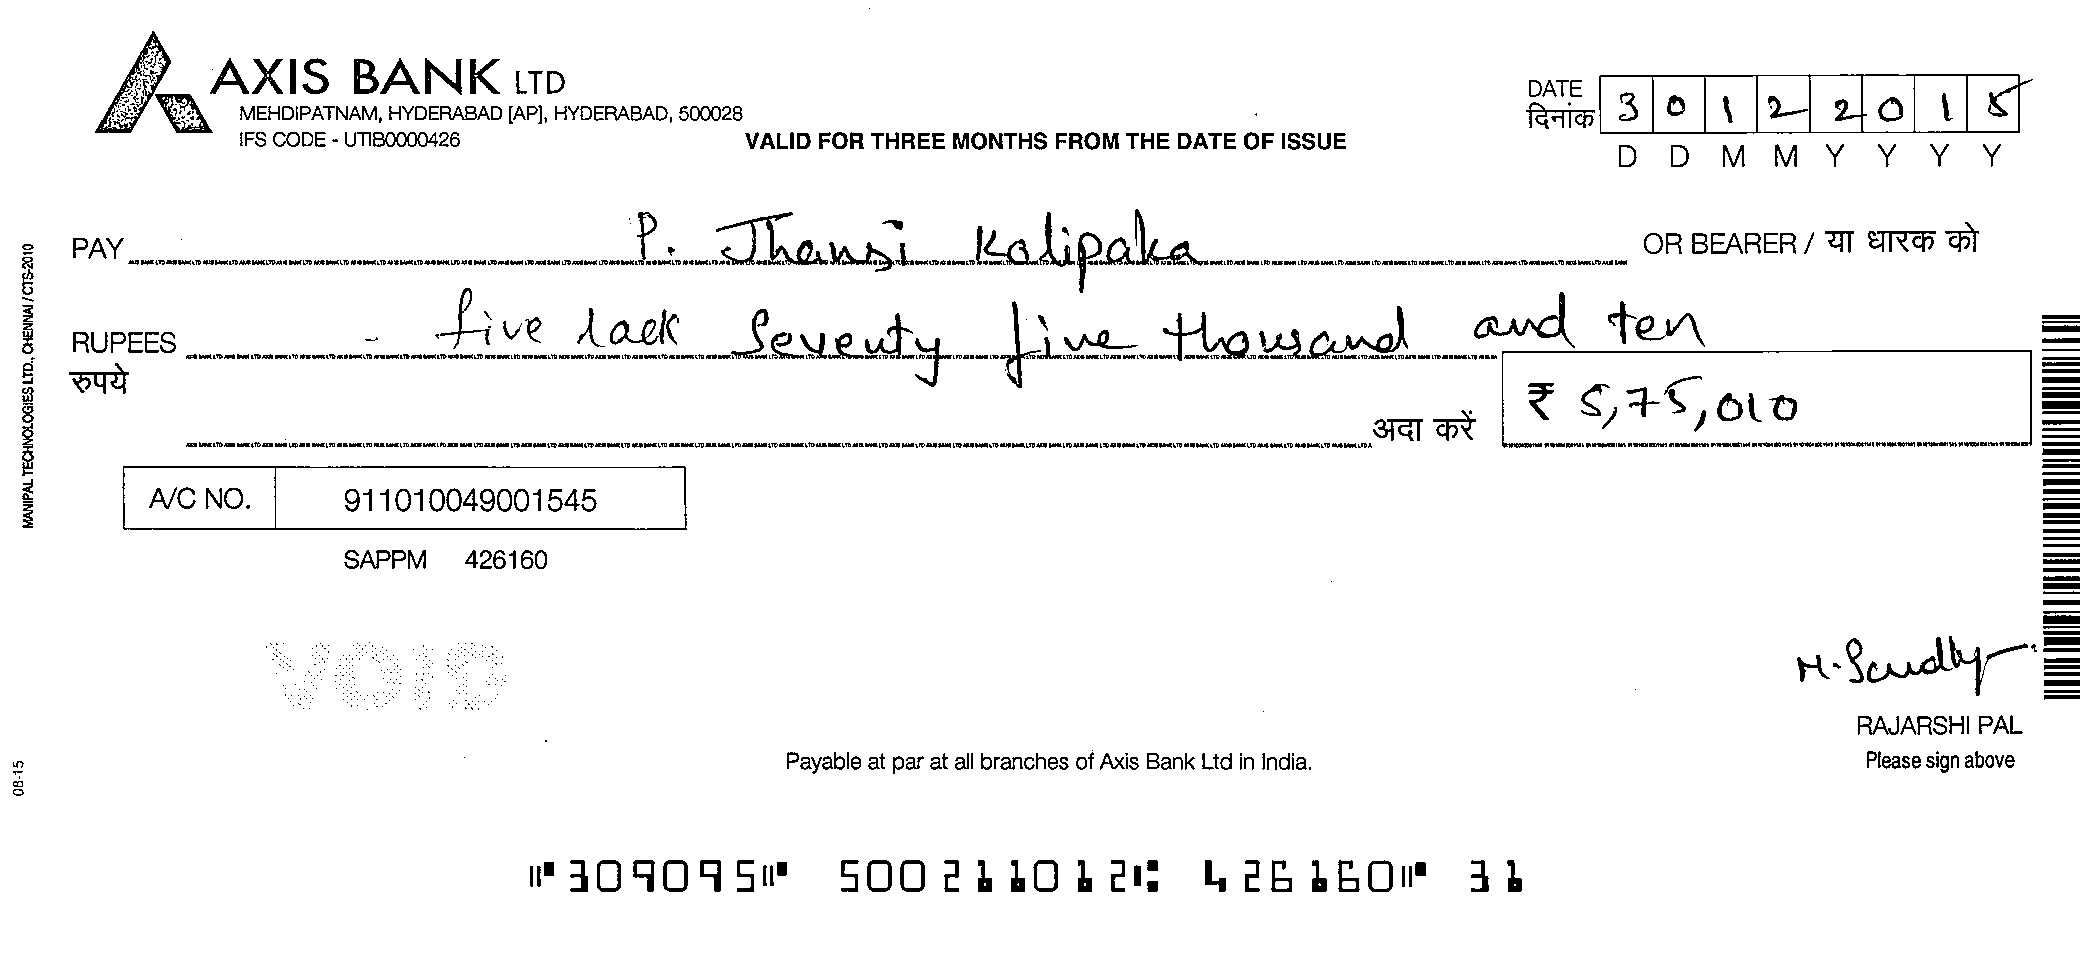 AXIS BANK LTD
MEHDIPATNAM, HYDERABAD [AP], HYDERABAD, 500028
IFS CODE - UTIB0000426
VALID FOR THREE MONTHS FROM THE DATE OF ISSUE
DATE
दिनांक
3 0 1 2 2 0 1 5
D D M M Y Y Y Y
PAY P. Jhansi Kolipaka OR BEARER / या धारक को
RUPEES - five lack Seventy five thousand and ten
रुपये
अदा करें ₹ 5,75,010
A/C NO. 911010049001545
SAPPM 426160
VOID
RAJARSHI PAL
Please sign above
Payable at par at all branches of Axis Bank Ltd in India.
⑈309095⑈ 500211012⑆ 426160⑈ 31
MANIPAL TECHNOLOGIES LTD., CHENNAI / CTS-2010
08-15